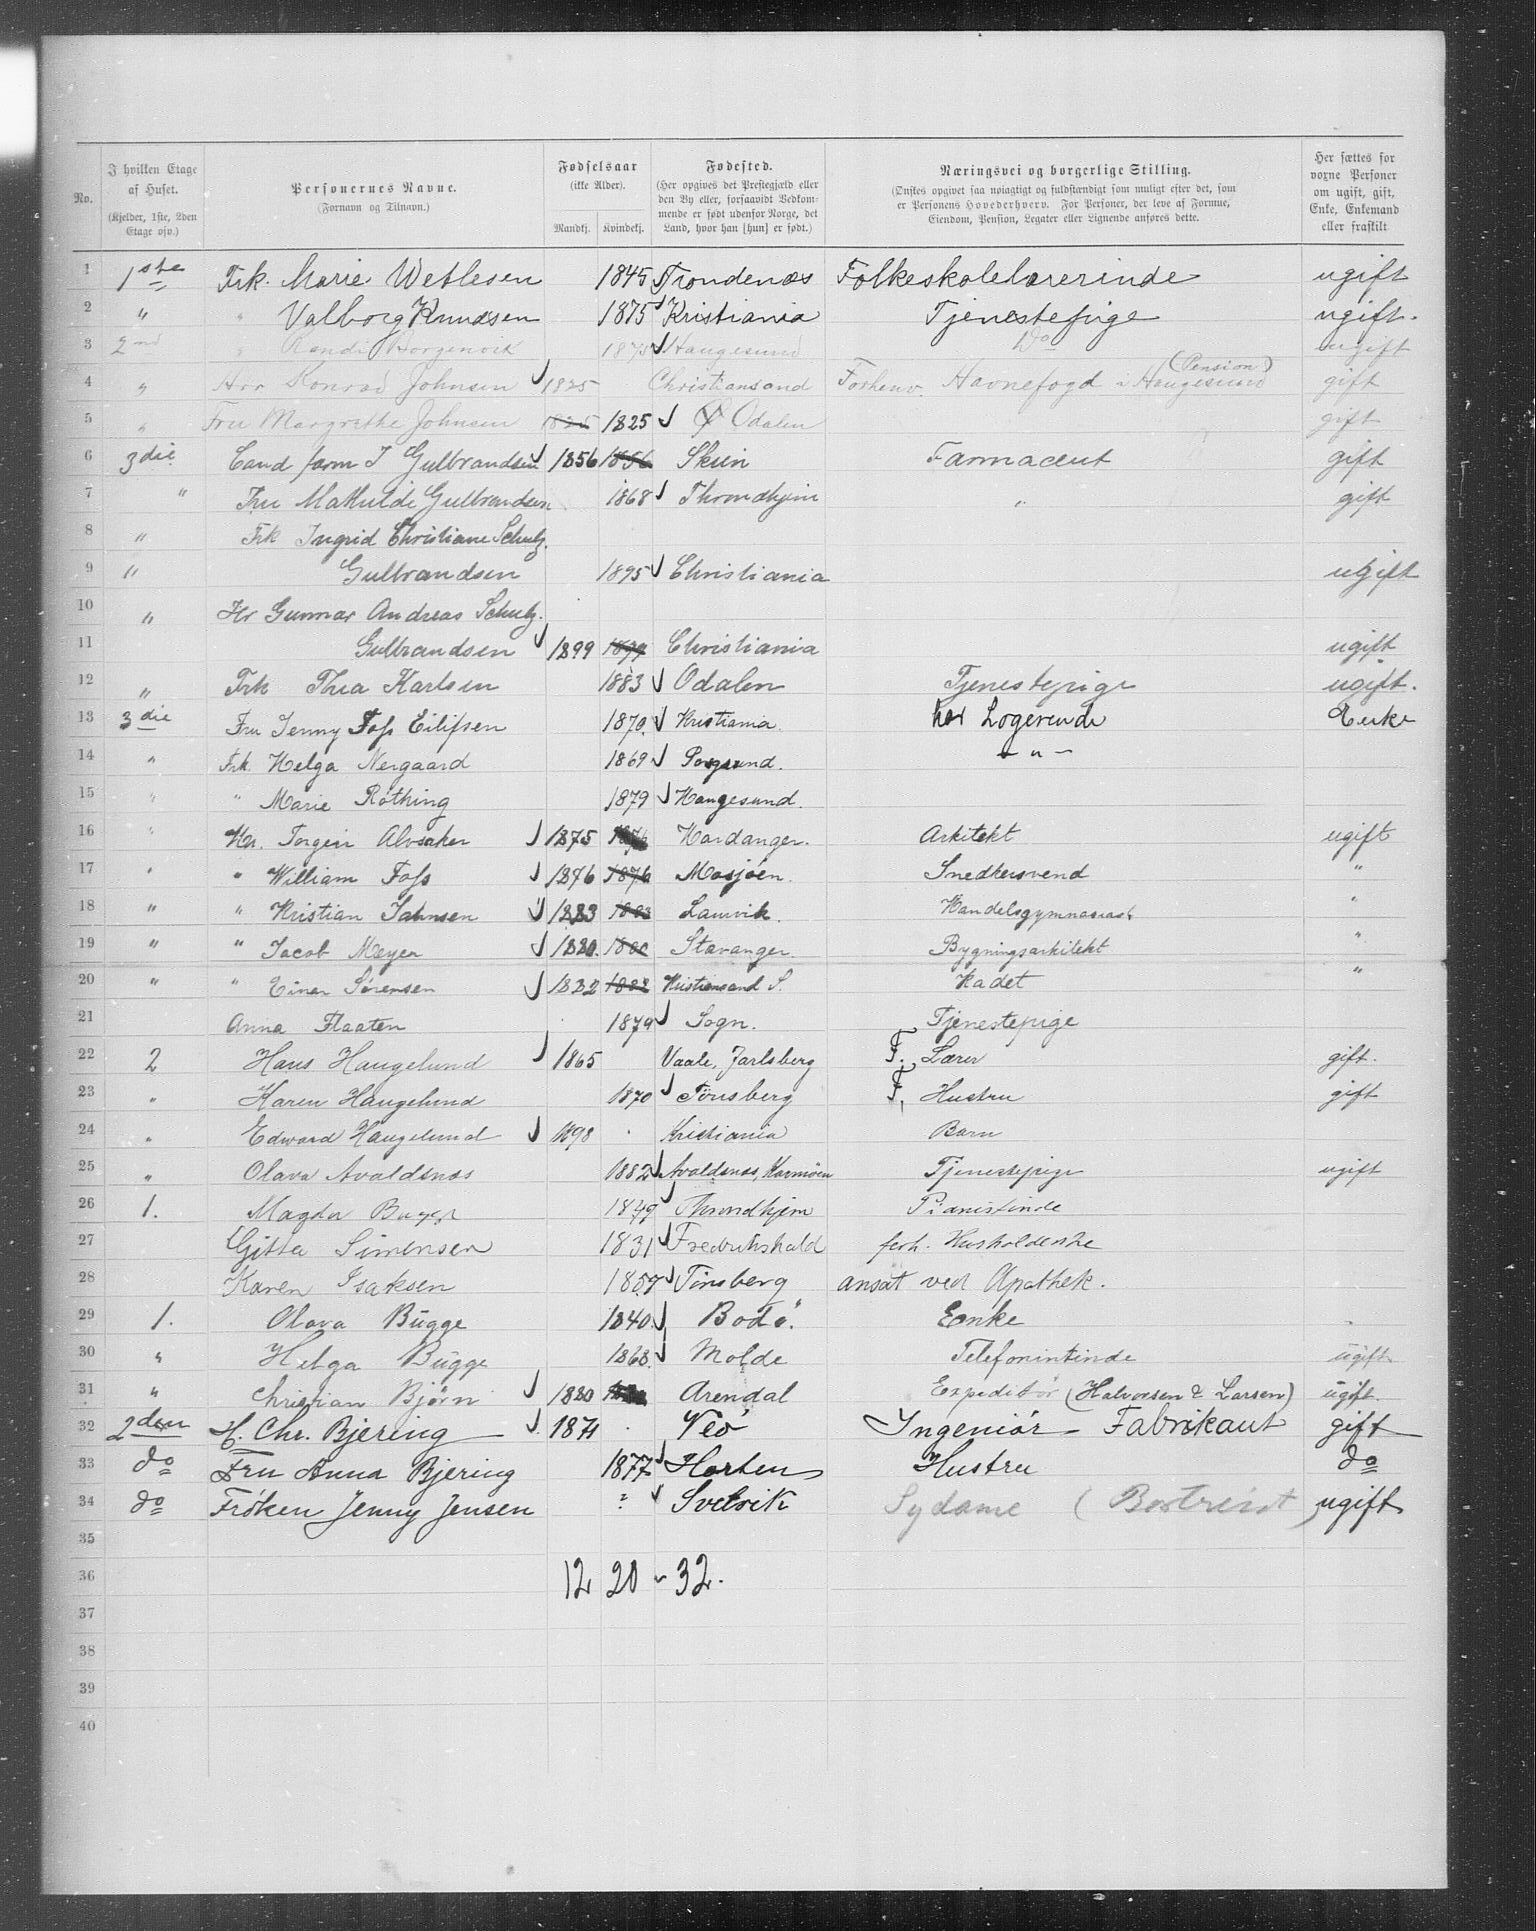 No.
I hvilken Etage af Huset.
(Kjelder, 1ste, 2den Etage osv.)
Personernes Navne.
(Fornavn og Tilnavn.)
Fødselsaar
(ikke Alder).
Mandkj. Kvindekj.
Fødested.
(Her opgives det Prestegjæld eller
den By eller, forsaavidt Vedkom-
mende er født udenfor Norge, det
Land, hvor han [hun] er født.)
Næringsvei og borgerlige Stilling.
(Ønskes opgivet saa nøiagtigt og fuldstændigt som muligt efter det, som
er Personens Hovederhverv. For Personer, der leve af Formue,
Eiendom, Pension, Legater eller Lignende anføres dette.
Her sættes for
voxne Personer
om ugift, gift,
Enke, Enkemand
eller fraskilt
1 1ste Frk. Marie Wetlesen 1845 Trondenæs Folkeskolelærerinde ugift
2 " " Valborg Knudsen 1875 Kristiania Tjenestepige ugift.
3 2nd " Randi 1875 Haugesund Do ugift
4 " Hrr Konrad Johnsen 1825 Christiansand Forhenv. Havnefogd i Haugesund (Pension) gift
5 " Fru Margrethe Johnsen 1825 1825 Ø Odalen gift
6 3die Cand farm J Gulbrandsen 1856 1856 Skien Farmaceut gift
7 " Fru Mathilde Gulbrandsen 1868 Throndhjem " gift
8 " Frk Ingrid Christiane Schulz.
9 " Gulbrandsen 1895 Christiania ugift
10 " Hr Gunnar Andreas Schulz.
11 Gulbrandsen 1899 1899 Christiania ugift
12 " Frk Thea Karlsen 1883 Odalen Tjenestepige ugift.
13 3die Fru Jenny Foss Eilifsen 1870. Kristiania. har Logerende Enke
14 " Frk. Helga Nergaard 1869 Porsgrund. - " -
15 " " Marie Røthing 1879 Haugesund.
16 " Hr. Torgeir Alvsaker 1875 1875 Hardanger. Arkitekt ugift
17 " " William Foss 1876 1876 Mosjøen. Snedkersvend "
18 " " Kristian Jahnsen 1883 1883 Laurvik. Handelsgymnasiast "
19 " " Jacob Meyer 1880. 1880 Stavanger Bygningsarkitekt "
20 " " Einar Sørensen 1882 1882 Kristiansand S. Kadet "
21 Anna Flaaten 1879 Sogn. Tjenestepige
22 2 Hans Haugelund 1865 Vaale, Jarlsberg F. Lærer gift.
23 " Karen Haugelund 1870 Tønsberg F. Hustru gift
24 " Edward Haugelund 1898 Kristiania Barn
25 " Olava Avaldsnæs 1882 Avaldsnæs, Karmøen Tjenestepige ugift
26 1. Magda 1849 Throndhjem Pianistinde
27 Gitta Simensen 1831 Fredrikshald forh. Husholderske
28 Karen Isaksen 1857 Tönsberg ansat ved Apothek.
29 1. Olava Bugge 1840. Bodö. Enke
30 " Helga Bugge 1868. Molde Telefonistinde ugift
31 " Christian Bjørn 1880 1880 Arendal Expeditör (Halvorsen & Larsen) ugift.
32 2den H. Chr. Bjering 1871 Ingeniør - Fabrikant gift
33 do Fru Anna Bjering 1877 Horten Hustru do
34 do Frøken Jenny Jensen ? Svelvik Sydame (Bortreist) ugift
35
36 12 20 - 32.
37
38
39
40